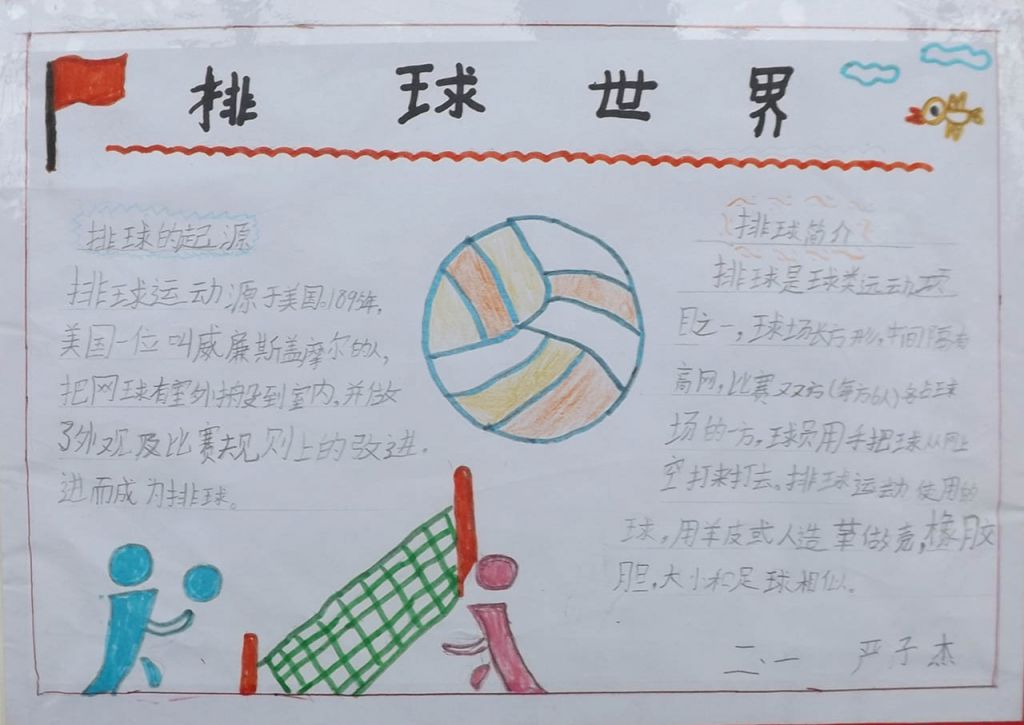 排球世界
排球的起源
排球运动源于美国。1895年,
美国一位叫威廉斯盖摩尔的人,
把网球有室外搬到室内,并做
了外观及比赛规则上的改进。
进而成为排球。
排球简介
排球是球类运动项
目之一,球场长方形,中间隔有
高网,比赛双方(每方6人)各占球
场的一方,球员用手把球从网上
空打来打去。排球运动使用的
球,用羊皮或人造革做壳,橡胶
胆,大小和足球相似。
二、一 严子杰